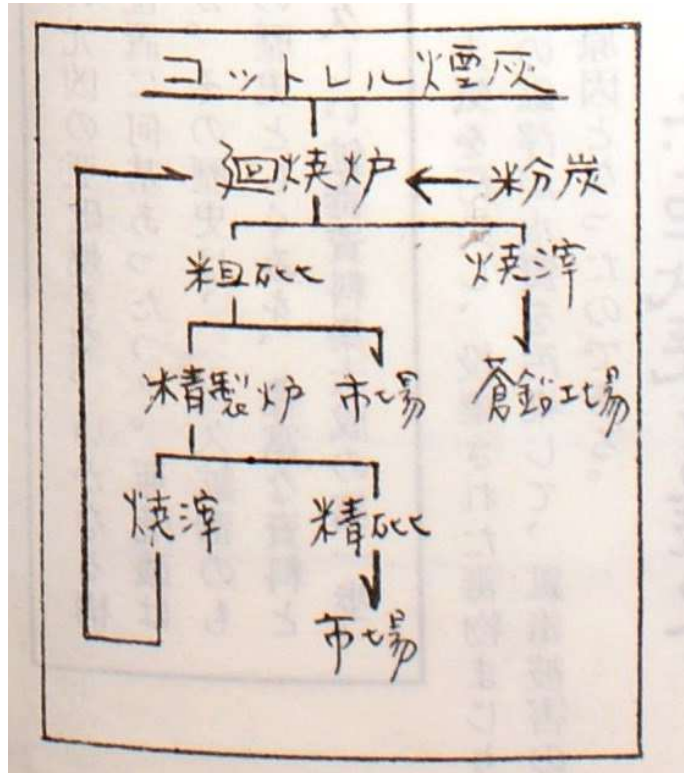 コットレル煙灰
廻焼炉 ← 粉炭
粗砒 焼滓
精製炉 市場 蒼鉛工場
焼滓 精砒
市場